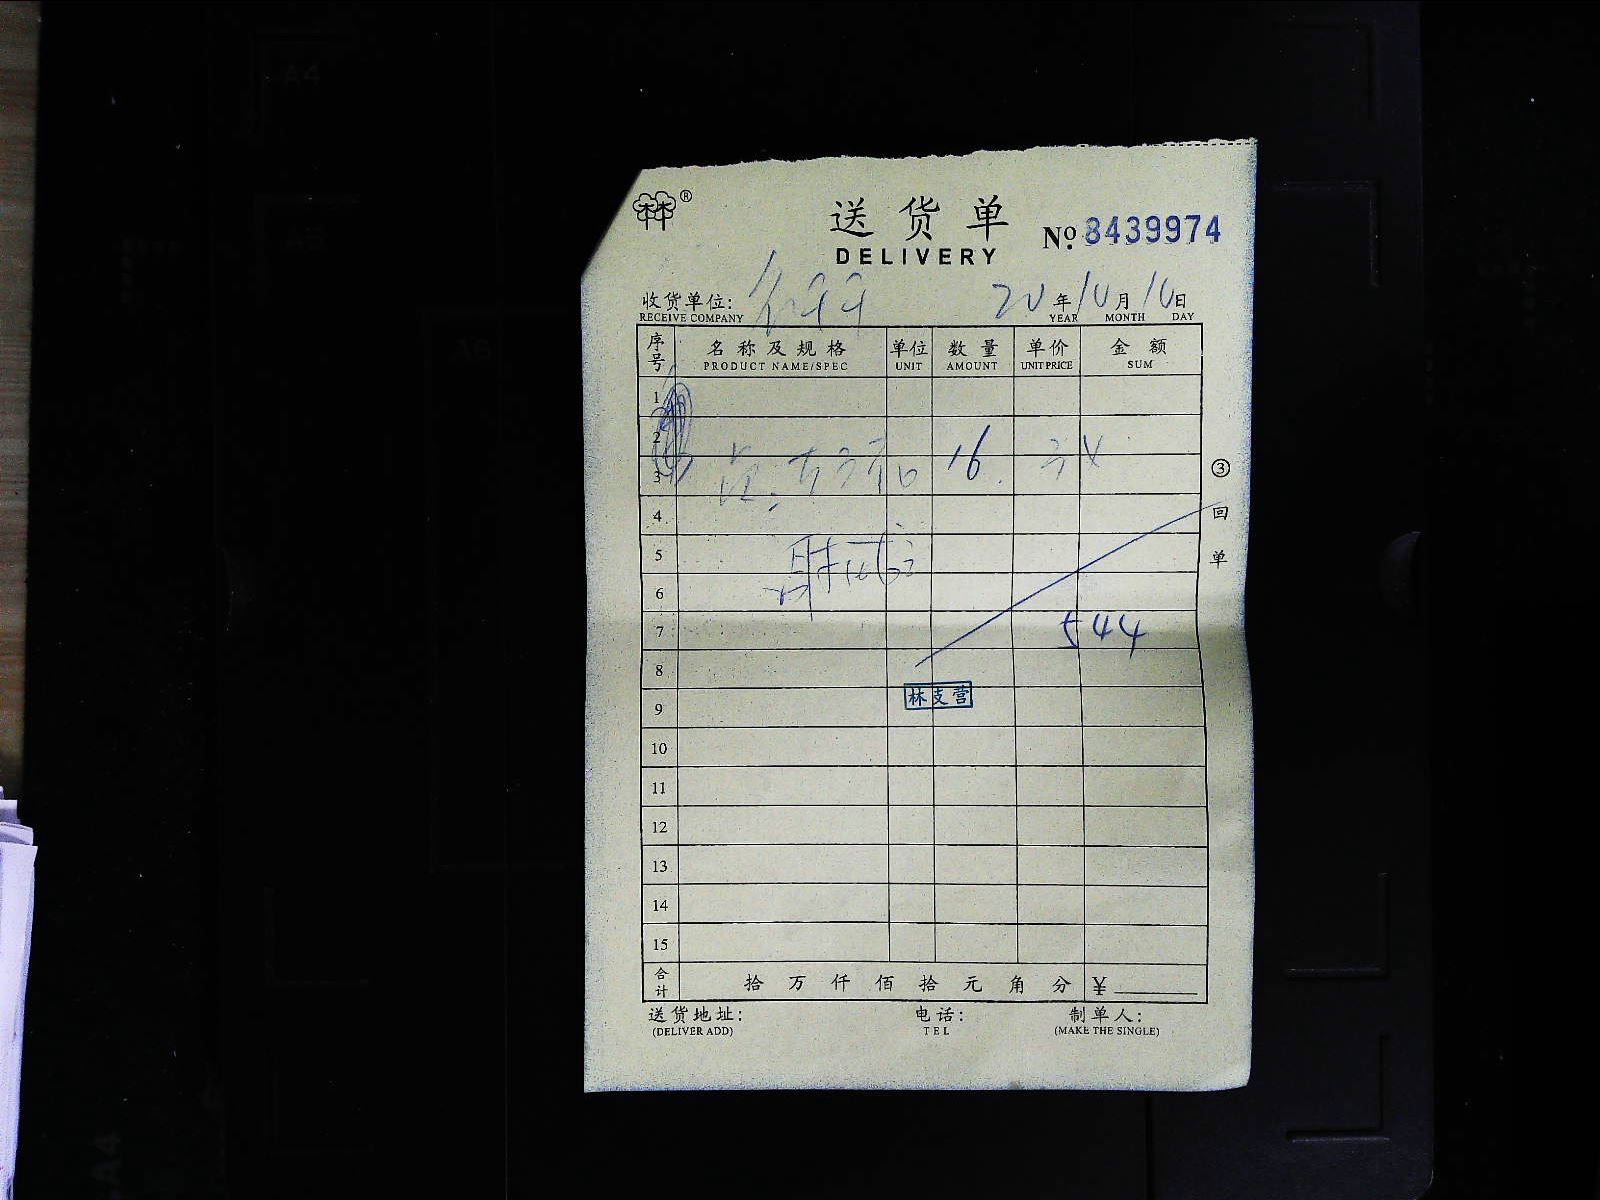 林®
送货单
No. 8439974
DELIVERY
收货单位:
20年10月10日
RECEIVE COMPANY YEAR MONTH DAY
序号 名称及规格 单位 数量 单价 金额
PRODUCT NAME/SPEC UNIT AMOUNT UNIT PRICE SUM
1
2
3 16 34
4
5
6
7 544
8
林支营
9
10
11
12
13
14
15
合计 拾 万 仟 佰 拾 元 角 分 ¥
送货地址: 电话: 制单人:
(DELIVER ADD) TEL (MAKE THE SINGLE)
③回单
A4
A5
A6
A4